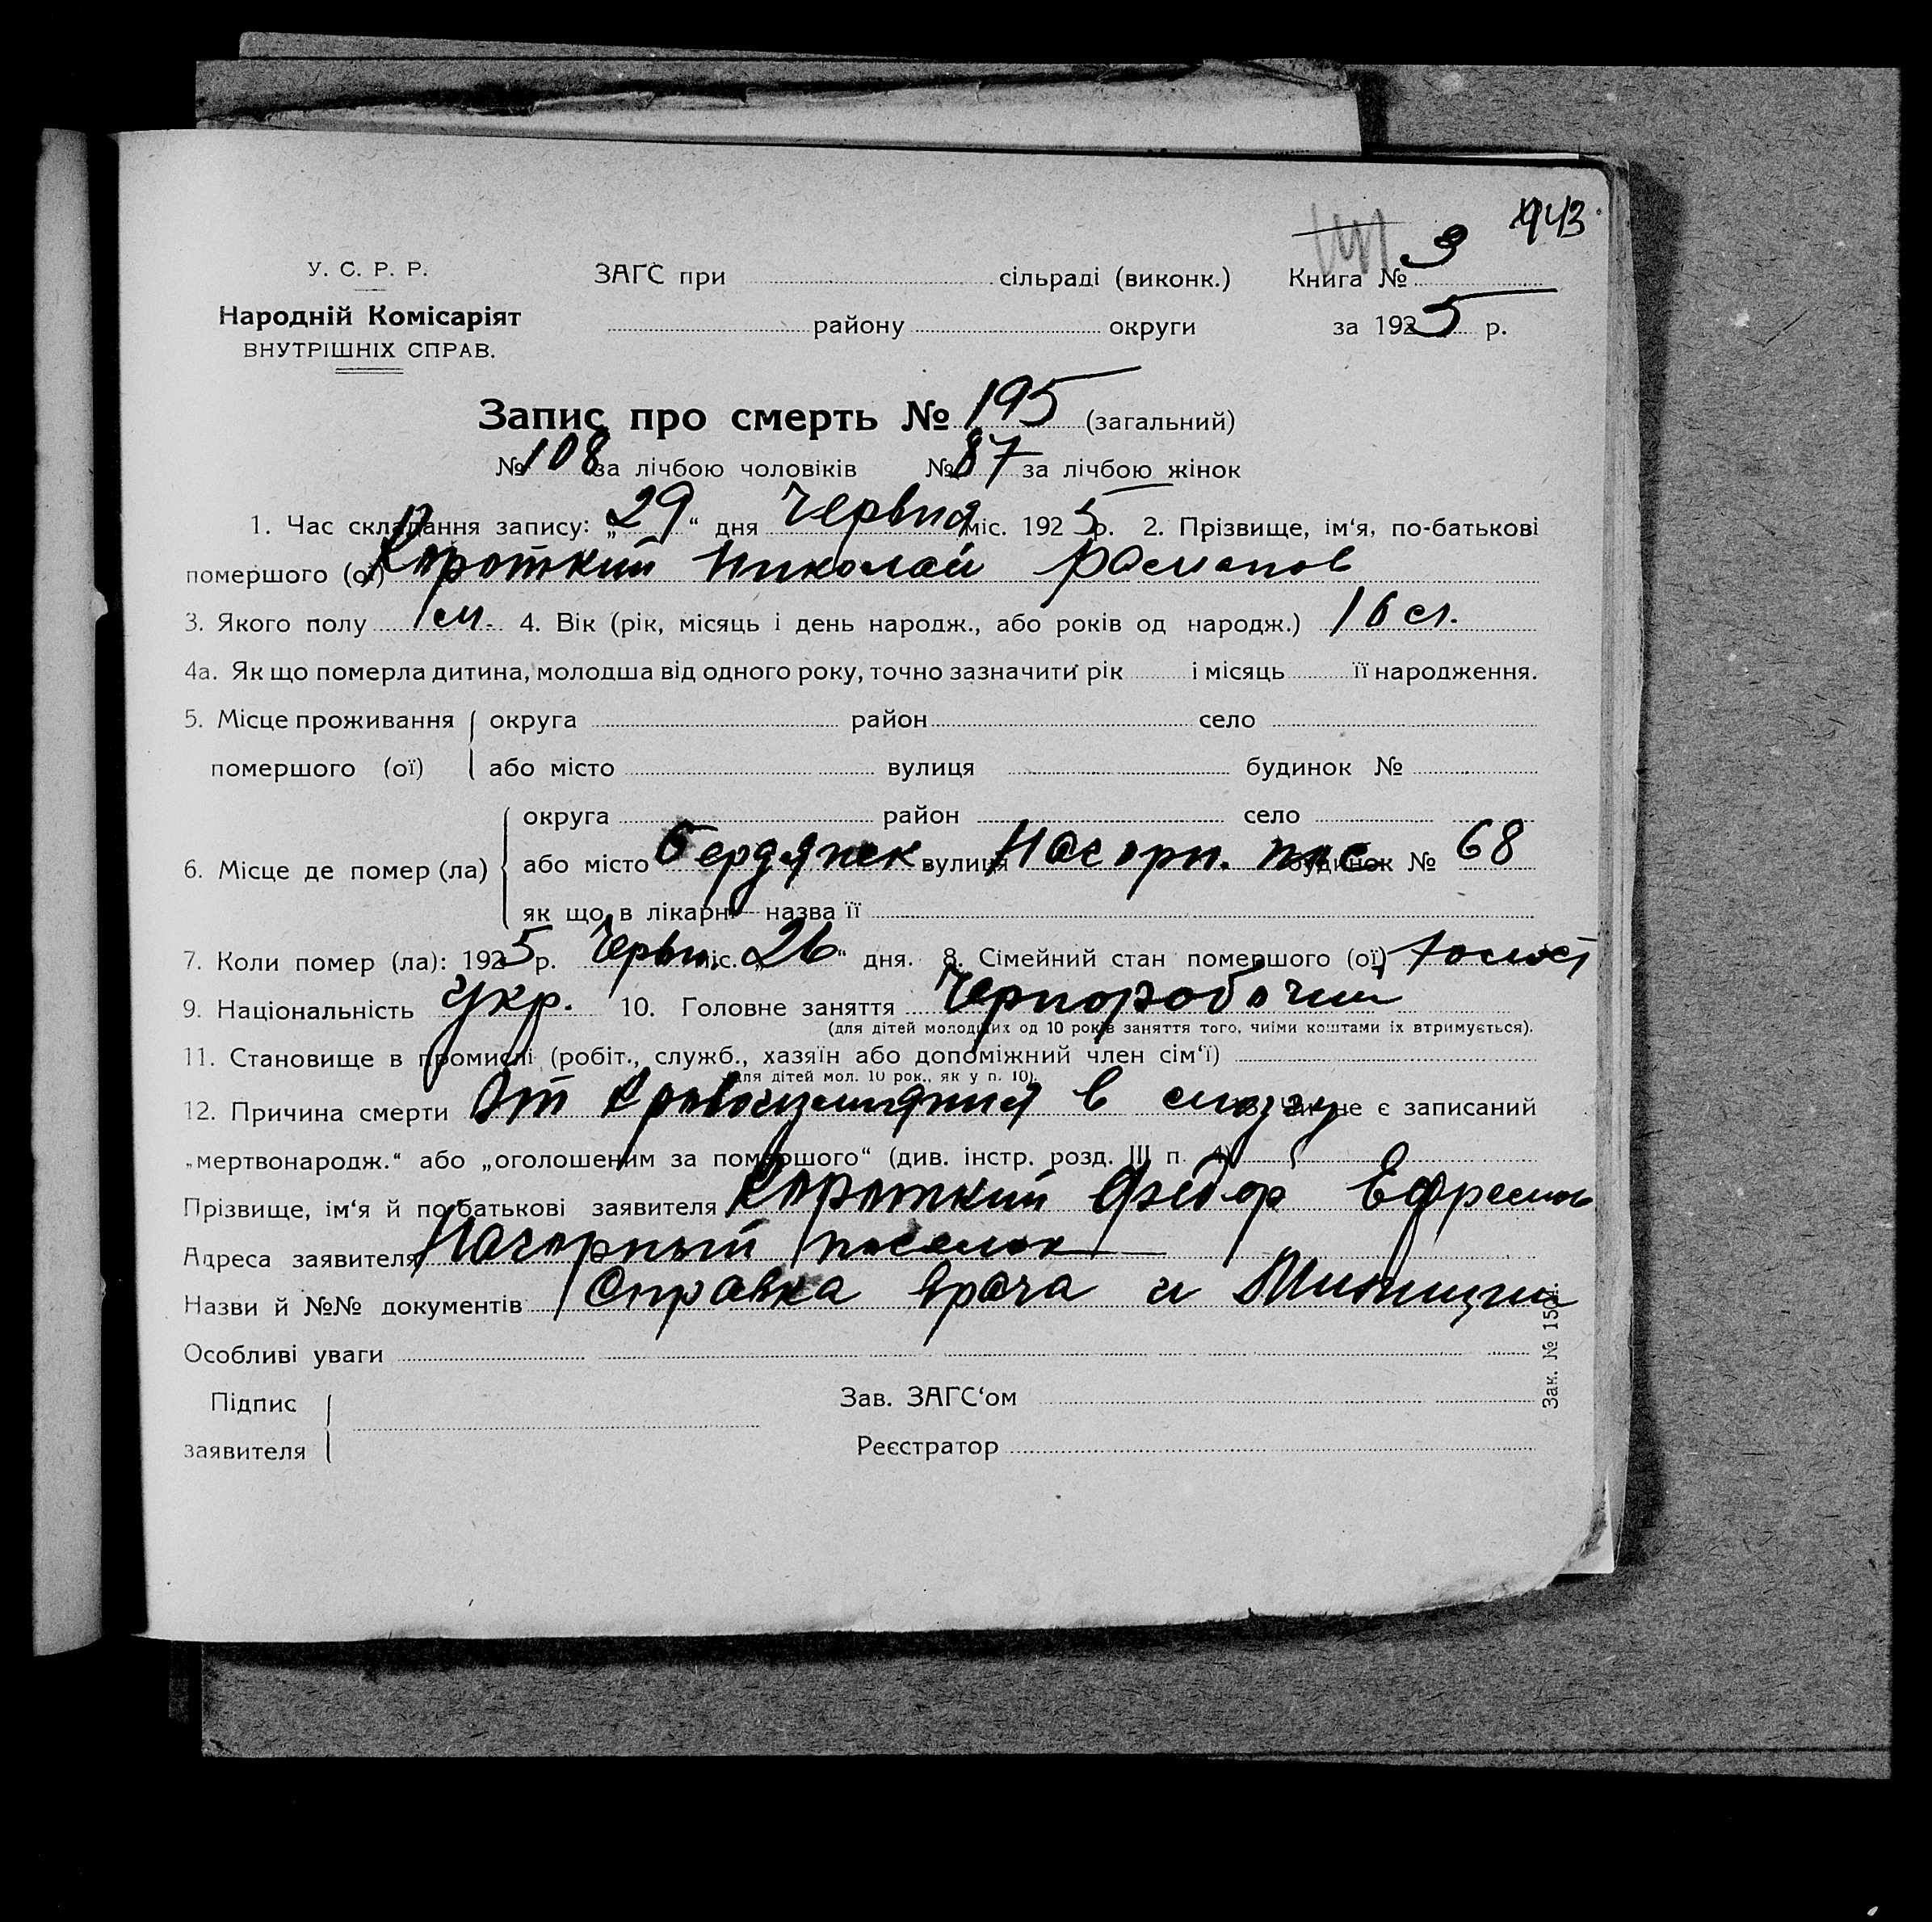 943
У. С. Р. Р.
ЗАГС при сільраді (виконк.) Книга № 3
Народній Комісаріят
району округи за 1925 р.
ВНУТРІШНІХ СПРАВ.
Запис про смерть № 195 (загальний)
№ 108 за лічбою чоловіків № 87 за лічбою жінок
1. Час складання запису: „29“ дня Червня міс. 1925 р. 2. Прізвище, ім‘я, по-батькові
помершого (ої) Короткий Николай Романов
3. Якого полу м. 4. Вік (рік, місяць і день народж., або років од народж.) 16 л.
4а. Як що померла дитина, молодша від одного року, точно зазначити рік і місяць її народження.
5. Місце проживання округа район село
помершого (ої) або місто вулиця будинок №
округа район село
6. Місце де помер (ла) або місто Бердянск вулиця Нагорн. пос будинок № 68
як що в лікарні — назва її
7. Коли помер (ла): 1925 р. Червн. міс. „26“ дня. 8. Сімейний стан помершого (ої)
9. Національність Укр. 10. Головне заняття Чернорабочий
(для дітей молодших од 10 років заняття того, чиїми коштами їх втримується).
11. Становище в промислі (робіт., служб., хазяїн або допоміжний член сім‘ї)
(для дітей мол. 10 рок., як у п. 10).
12. Причина смерти От Кровоизлияния в мозгу 13. Чи не є записаний
„мертвонародж.“ або „оголошеним за помершого“ (див. інстр. розд. III п. 4)
Прізвище, ім‘я й по-батькові заявителя Короткий Фëдор Ефремов
Адреса заявителя Нагорный поселок
Назви й №№ документів Справка врача и Милиции
Особливі уваги
Підпис Зав. ЗАГС‘ом
заявителя Реєстратор
Зак. №